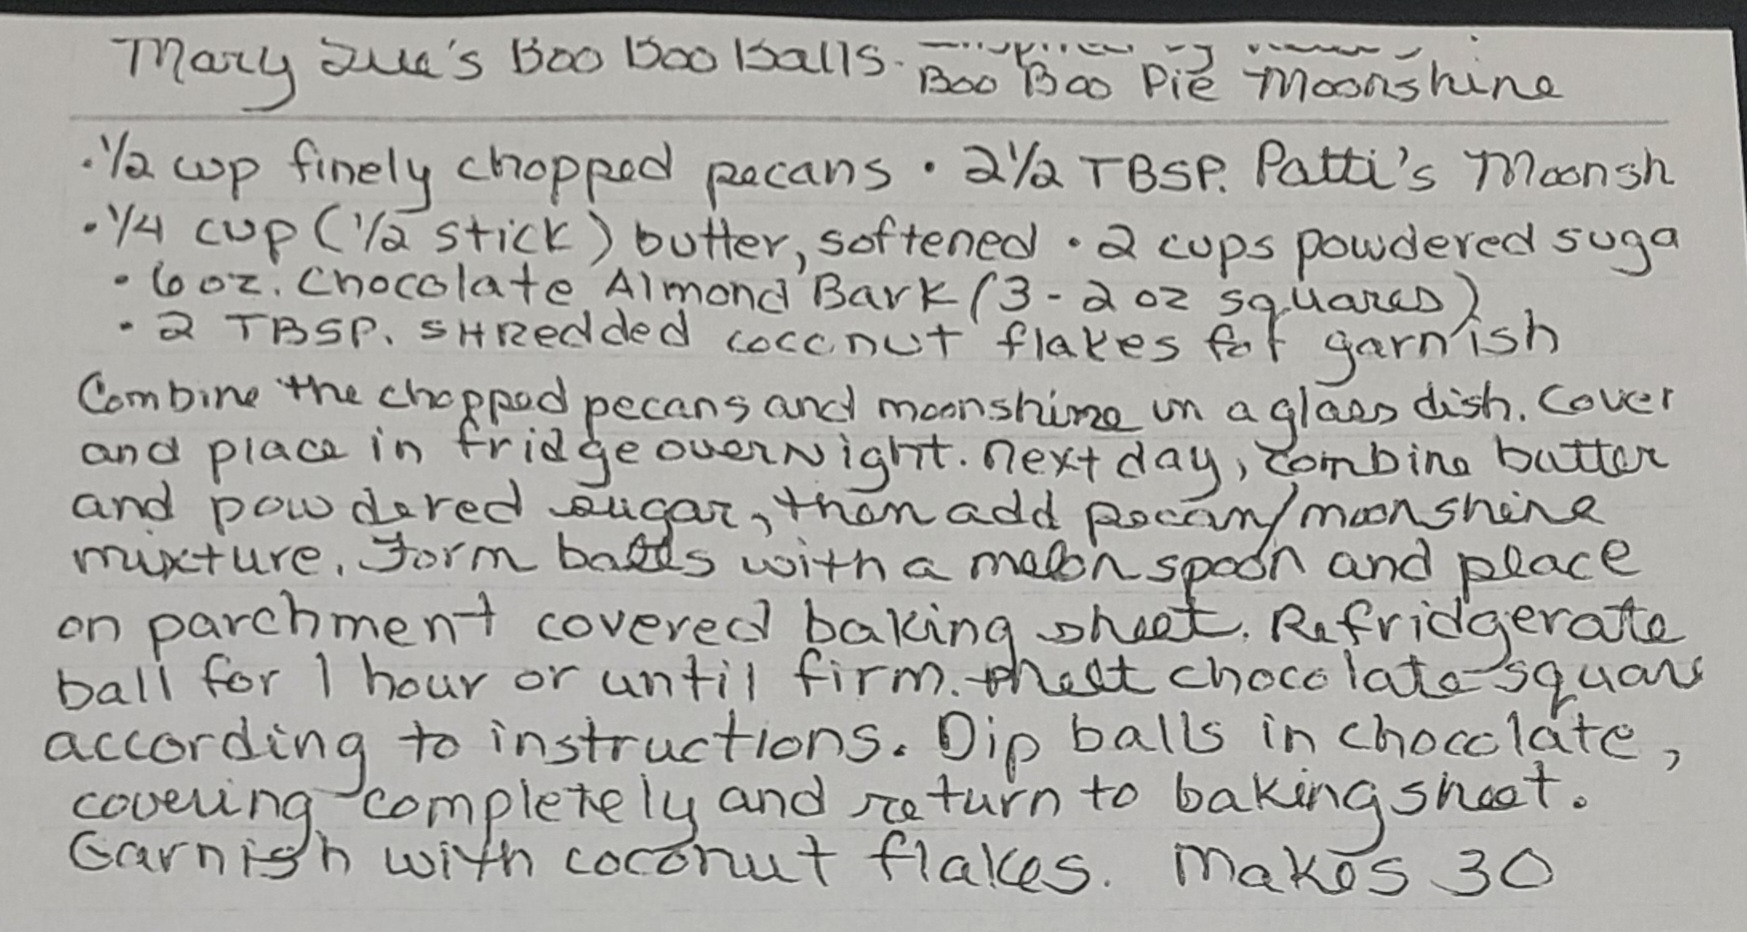 Mary Sue's Boo Boo Balls.
Boo Boo Pie Moonshine
• 1/2 cup finely chopped pecans • 2 1/2 TBSP. Patti's Moonsh
• 1/4 cup (1/2 stick) butter, softened • 2 cups powdered suga
• 6 oz. Chocolate Almond Bark (3 - 2 oz squares)
• 2 TBSP. SHRedded coconut flakes for garnish
Combine the chopped pecans and moonshine in a glass dish. Cover
and place in fridge overnight. Next day, combine butter
and powdered sugar, then add pecan/moonshine
mixture. Form balls with a melon spoon and place
on parchment covered baking sheet. Refridgerate
ball for 1 hour or until firm. Melt chocolate squares
according to instructions. Dip balls in chocolate,
covering completely and return to baking sheet.
Garnish with coconut flakes. Makes 30